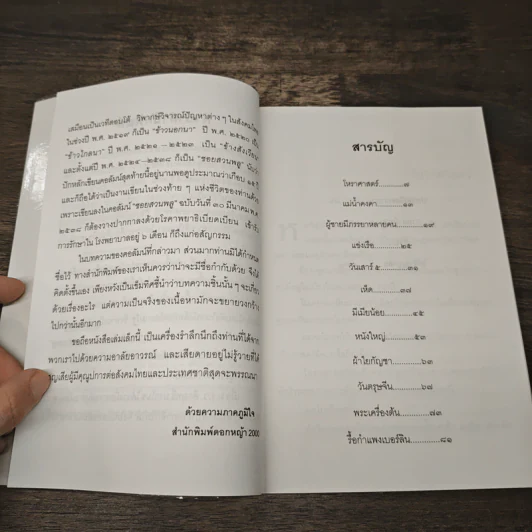 เสมือนเป็นเวทีตอบโต้ วิพากษ์วิจารณ์ปัญหาต่าง ๆ ในสังคมไทย
ในช่วงปี พ.ศ. ๒๕๑๙ ก็เป็น "ข้าวนอกนา" ปี พ.ศ. ๒๕๒๐ เป็น
"ข้าวไกลนา" ปี พ.ศ. ๒๕๒๑ – ๒๕๒๓ เป็น "ข้างสังเวียน"
และตั้งแต่ปี พ.ศ. ๒๕๒๔–๒๕๓๘ ก็เป็น "ซอยสวนพลู" นับว่า
ปักหลักเขียนคอลัมน์สุดท้ายนี้อยู่นานพอดูประมาณว่าเกือบ ๑๕ ปี
และก็ถือได้ว่าเป็นงานเขียนในช่วงท้าย ๆ แห่งชีวิตของท่านด้วย
เพราะเขียนลงในคอลัมน์ "ซอยสวนพลู" ฉบับวันที่ ๓๐ มีนาคม พ.ศ.
๒๕๓๘ ก็ต้องวางปากกาลงด้วยโรคาพยาธิเบียดเบียน เข้ารับ
การรักษาใน โรงพยาบาลอยู่ ๖ เดือน ก็ถึงแก่อสัญกรรม
ในบทความของคอลัมน์ที่กล่าวมา ส่วนมากท่านมิได้กำหนด
ชื่อไว้ ทางสำนักพิมพ์ของเราเห็นควรว่าน่าจะมีชื่อกำกับด้วย จึงได้
คิดตั้งขึ้นเอง เพียงหวังเป็นเข็มทิศชี้นำว่าบทความชิ้นนั้น ๆ จะเกี่ยว
ด้วยเรื่องอะไร แต่ความเป็นจริงของเนื้อหามักจะขยายวงกว้าง
ไปกว่านั้นอีกมาก
ขอถือหนังสือเล่มเล็กนี้ เป็นเครื่องรำลึกนึกถึงท่านที่ได้จาก
พวกเราไปด้วยความอาลัยอาวรณ์ และเสียดายอยู่ไม่รู้วายที่ได้
สูญเสียผู้มีคุณูปการต่อสังคมไทยและประเทศชาติสุดจะพรรณนา
ด้วยความภาคภูมิใจ
สำนักพิมพ์ดอกหญ้า 2000
สารบัญ
โหราศาสตร์..........๗
แม่น้ำคงคา..........๑๓
ผู้ชายมีภรรยาหลายคน..........๑๙
แข่งเรือ..........๒๕
วันเสาร์ ๕..........๓๑
เห็ด..........๓๗
มีเมียน้อย..........๔๕
หนังใหญ่..........๕๓
ผ้าใยกัญชา..........๖๓
วันตรุษจีน..........๖๗
พระเครื่องต้น..........๗๓
รื้อกำแพงเบอร์ลิน..........๘๑